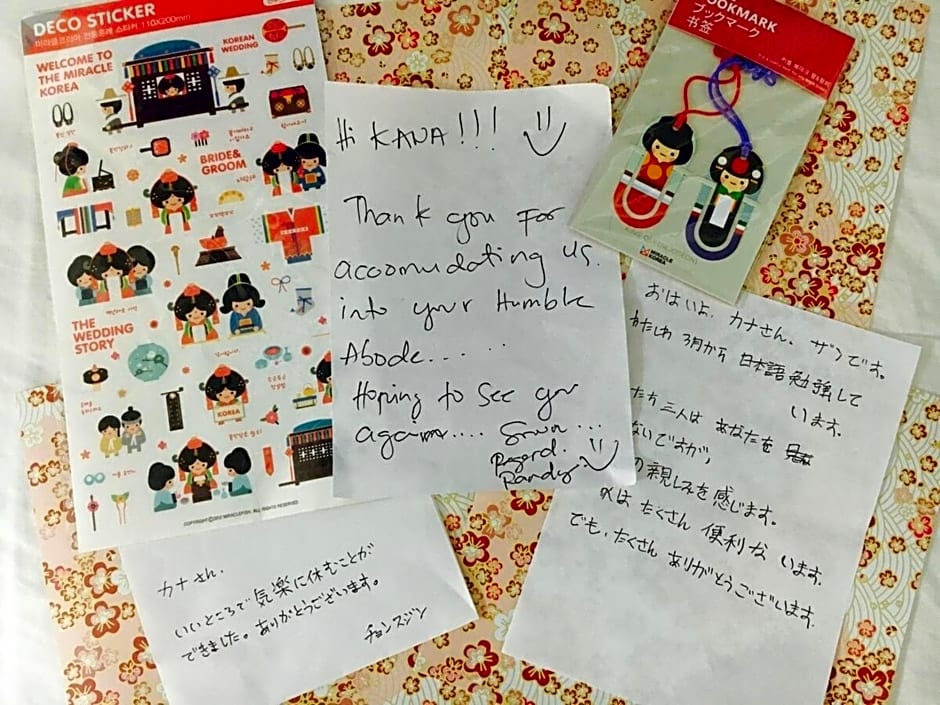 DECO STICKER
미라클코리아 전통혼례 스티커 110X200mm
WELCOME TO
THE MIRACLE
KOREA
KOREAN
WEDDING
BRIDE&
GROOM
THE
WEDDING
STORY
KOREA
COPYRIGHTⓒ2012 MIRACLEFISH. ALL RIGHTS RESERVED.
Hi KANA!!!
Thank you For
accomudating us.
into your Humble
Abode.... ..
Hoping to see you
again.... Soon...
Regard.
Randy
BOOKMARK
ブックマーク
书签
MIRACLE
KOREA
おはいよ. カナさん. ザンです。
わたしわ 3月から 日本語 勉強して
います。
たち 三人は あなたを
ないですが,
の親しみを感じます。
はたくさん 便利な います.
でも, たくさん ありがとうございます.
カナさん.
いいところで気楽に休むことが
できました。ありがとうございます。
チョンスジン